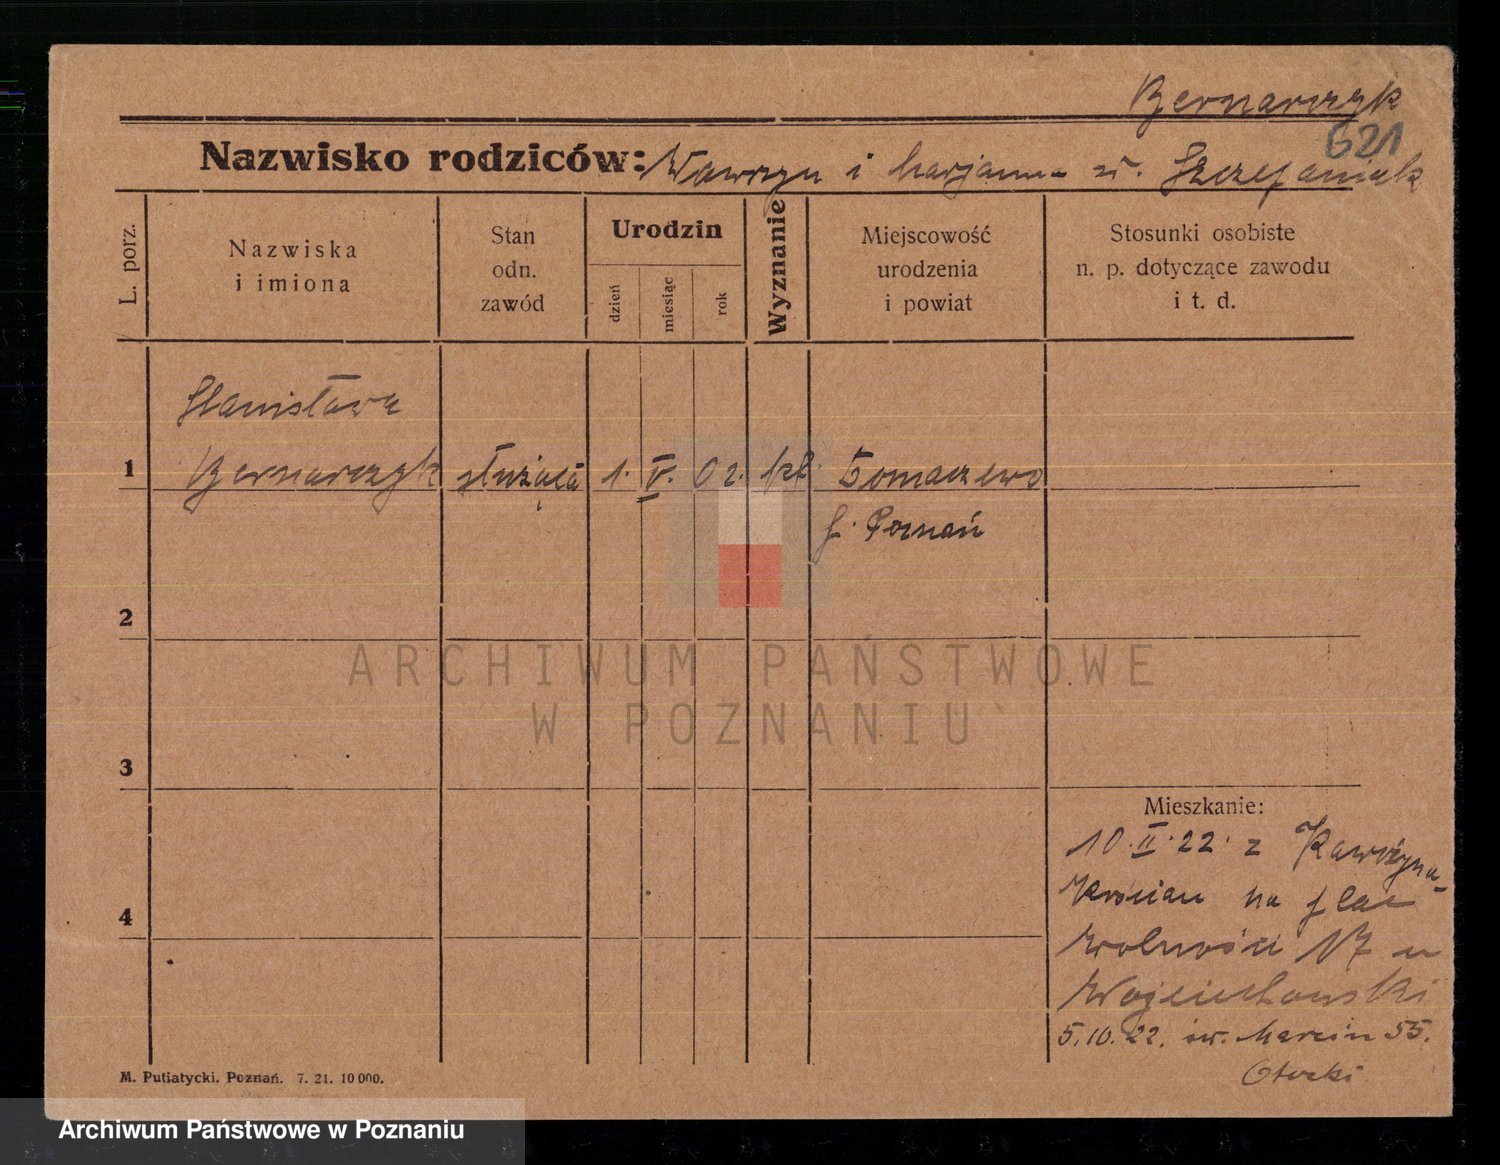 Bernarczyk
621
Nazwisko rodziców: Wawrzyn i Marjanna z Szczepaniak
L. porz.
Nazwiska
i imiona
Stan
odn.
zawód
Urodzin
dzień
miesiąc
rok
Wyznanie
Miejscowość
urodzenia
i powiat
Stosunki osobiste
n. p. dotyczące zawodu
i t. d.
Stanisława
1 Bernarczyk służąca 1. V. 02. kt. Tomaczewo
p. Poznań
2
ARCHIWUM PAŃSTWOWE
W POZNANIU
3
Mieszkanie:
10. II. 22. z
Kościan na plac
4
Wolności 17 u
Wojciechowski
5.10.22. św. Marcin 55.
Otocki
M. Putiatycki. Poznań. 7. 21. 10 000.
Archiwum Państwowe w Poznaniu